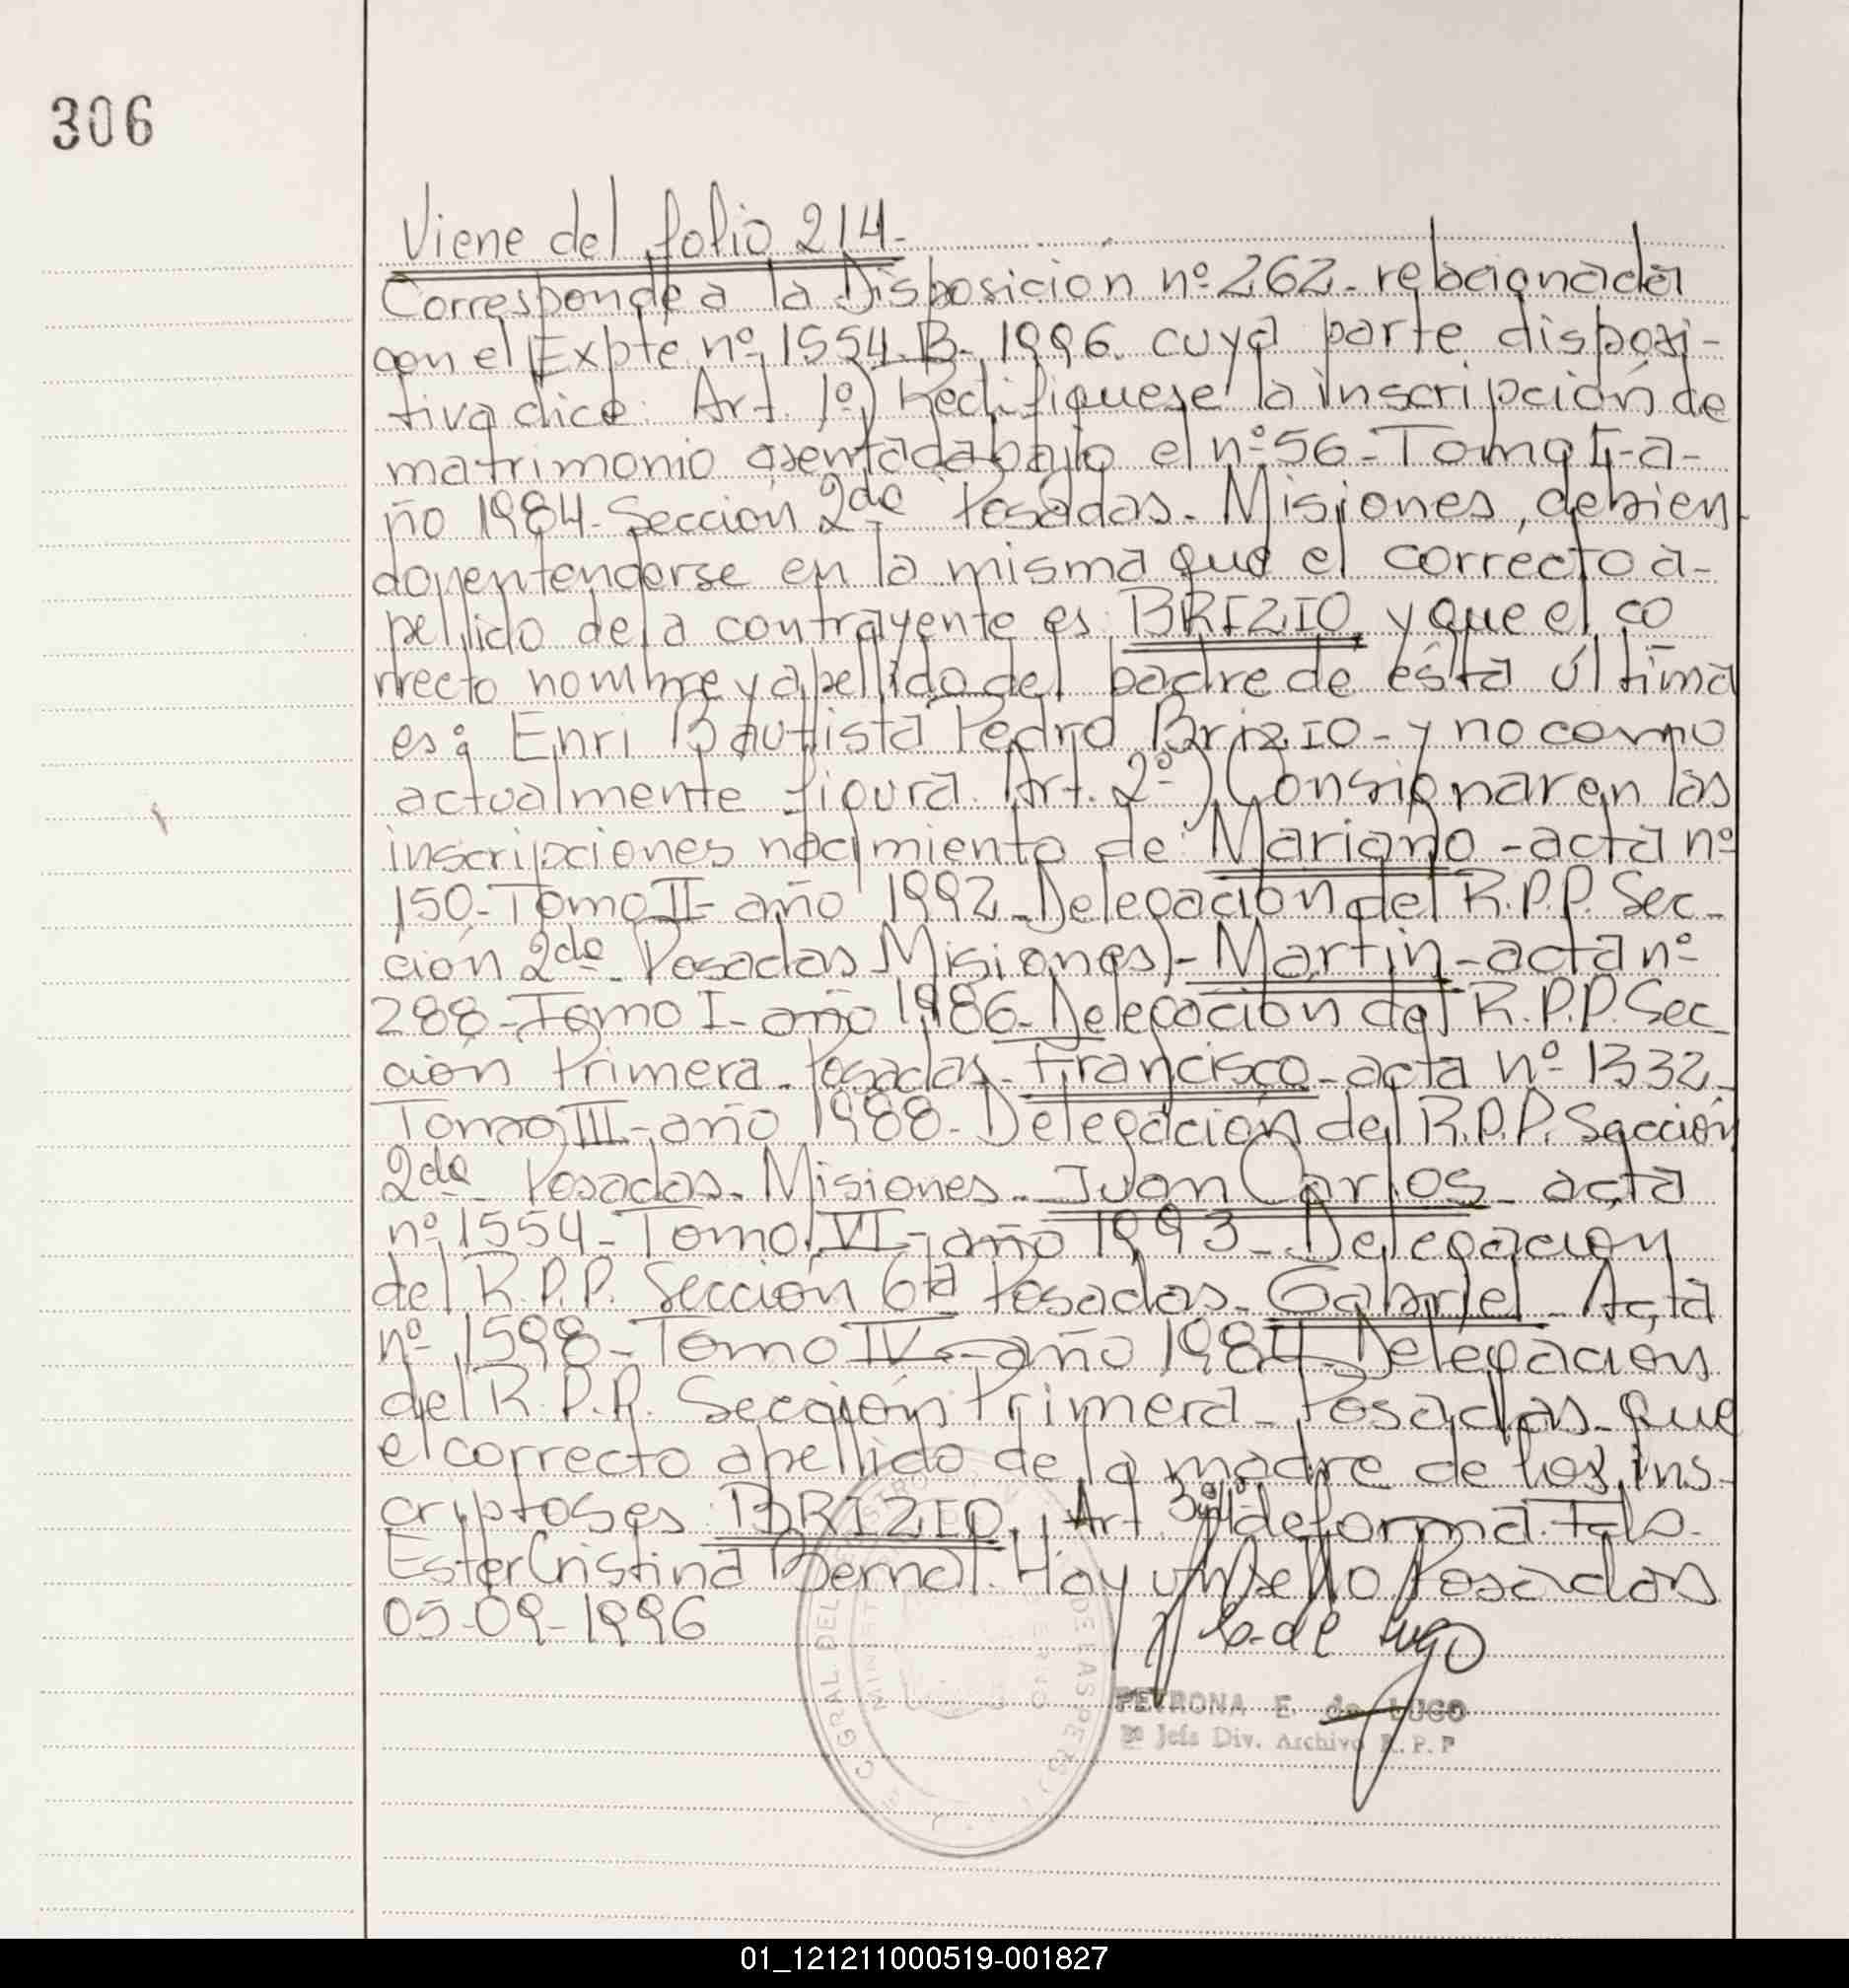 306
Viene del folio 214-
Corresponde a la Disposición nº 262- relacionada
con el Expte nº 1554-B-1996. cuya parte disposi-
tiva dice: Art. 1º) Rectifiquese la inscripción de
matrimonio asentada bajo el nº 56-Tomo I-a-
ño 1984-Sección 2da Posadas-Misiones, debien
do entenderse en la misma que el correcto a-
pellido de la contrayente es BRIZIO y que el co
rrecto nombre y apellido del padre de ésta última
es: Enri Bautista Pedro Brizio-y no como
actualmente figura. Art. 2º) Consignar en las
inscripciones nacimiento de Mariano-acta nº
150-Tomo II-año 1992-Delegación del R.P.P. Sec-
ción 2da-Posadas Misiones)-Martin-acta nº
288-Tomo I-año 1986-Delegación del R.P.P. Sec
ción Primera-Posadas-Francisco-acta nº 1332-
Tomo III-año 1988-Delegación del R.P.P. Sección
2da Posadas-Misiones-Juan Carlos-acta
nº 1554-Tomo VI-año 1993-Delegación
del R.P.P. Sección 6ta Posadas-Gabriel-Acta
nº 1598-Tomo IV-año 1984-Delegación
del R.P.P. Sección Primera-Posadas-que
el correcto apellido de la madre de los ins-
criptos es BRIZIO. Art. 3º) de forma. Fdo.
Ester Cristina Bernal. Hay un sello Posadas
05-09-1996
de Lugo
PETRONA E. de LUGO
Jefa Div. Archivo R. P. P
GRAL DEL DE LAS PERS
MINIST
01_121211000519-001827